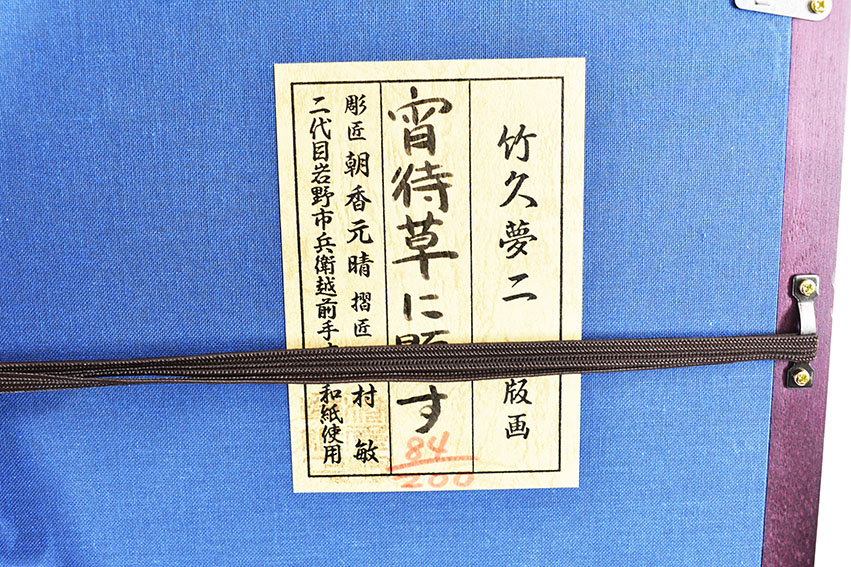 竹久夢二 版画
宵待草に す
84/200
彫匠 朝香元晴 摺匠 村 敏
二代目岩野市兵衛越前手 和紙使用